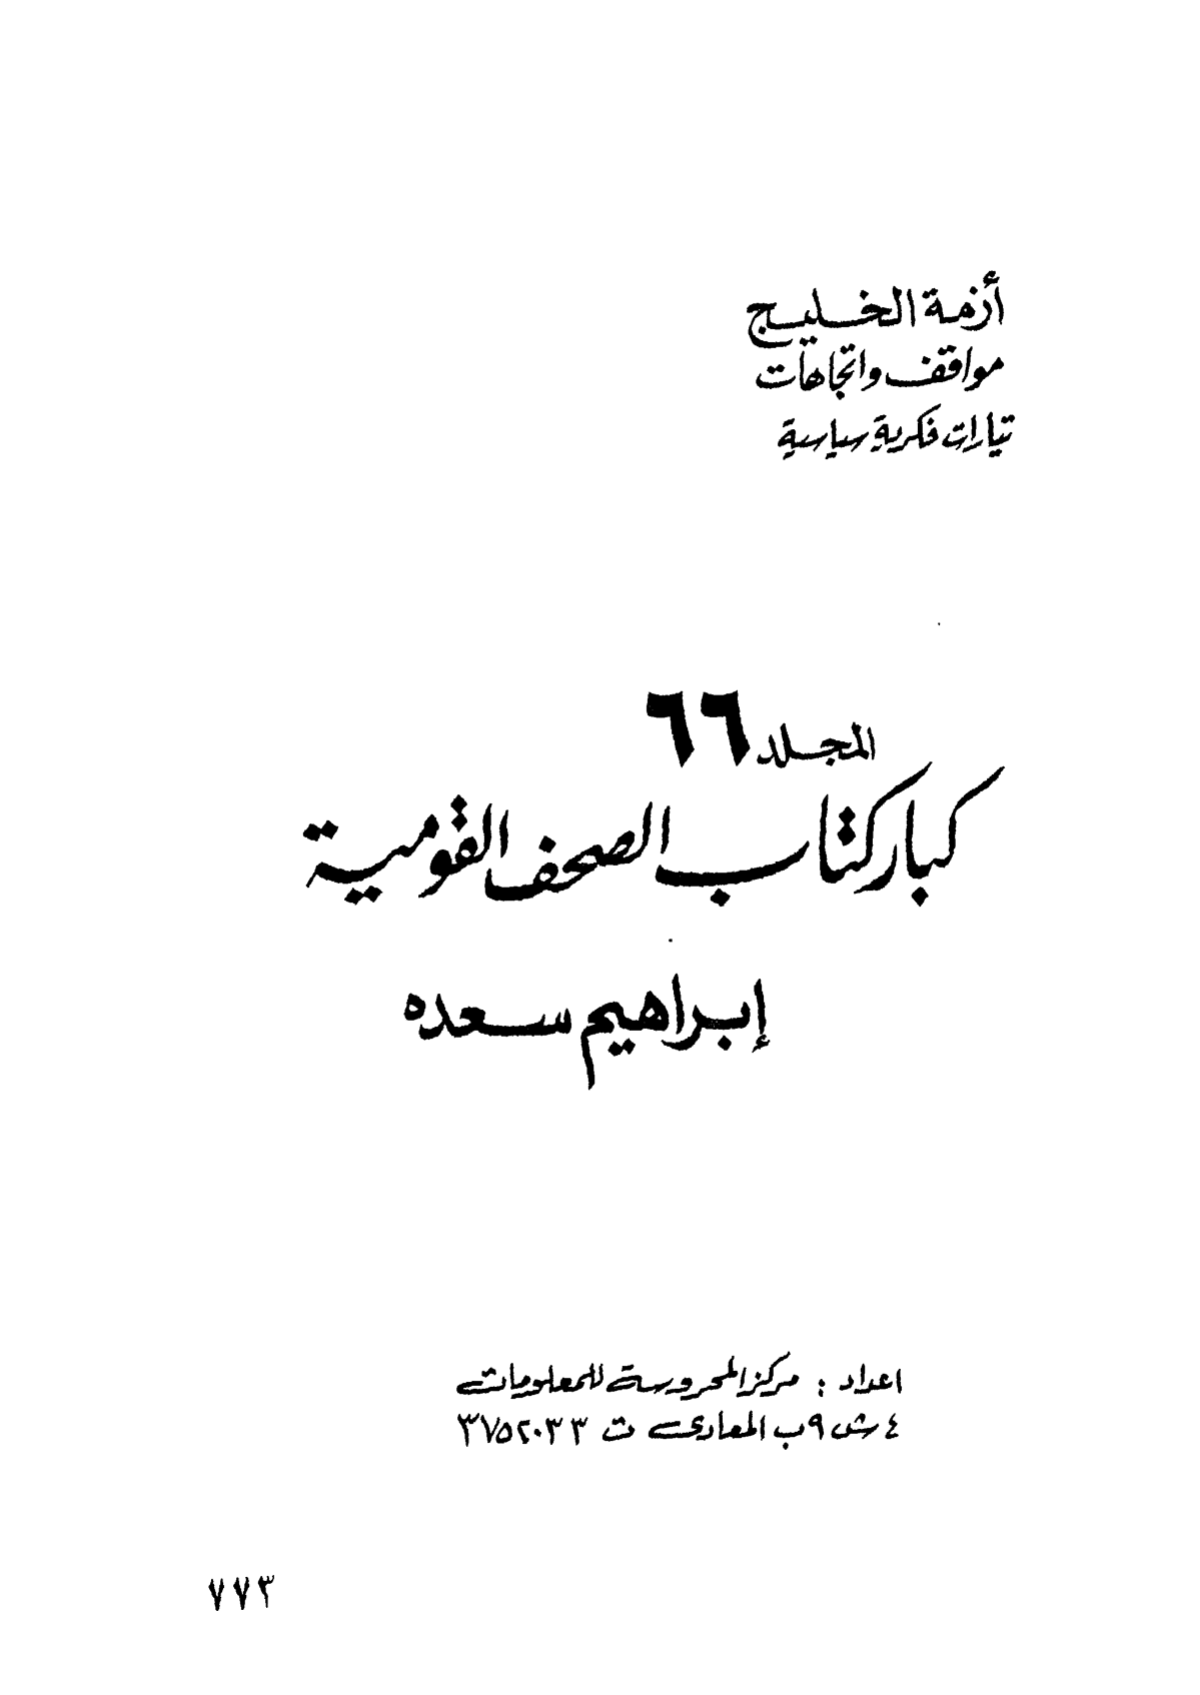 أزمة الخليج
مواقف واتجاهات
تيارات فكرية سياسية
المجلد ٦٦
كبار كتاب الصحف القومية
إبراهيم سعده
اعداد : مركز المحروسة للمعلومات
٤ ش ٩ب المعادى ت ٣٧٥٢٠٣٣
٧٧٣